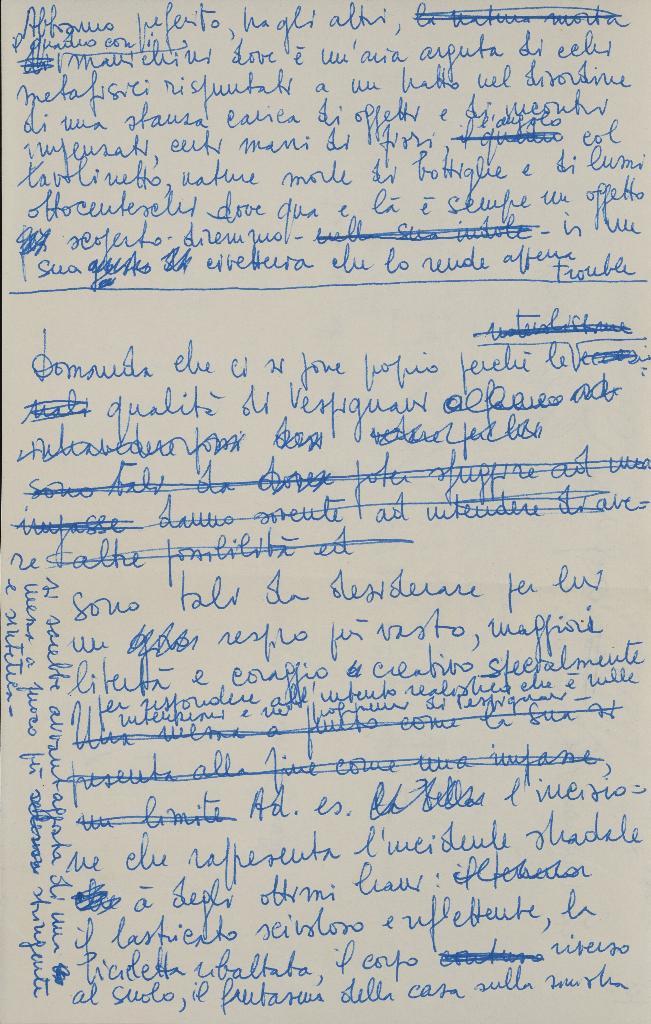 Abbiamo preferito, tra gli altri, la natura morta
il quadro con i
manichini dove è un'aria arguta di echi
metafisici rispuntati a un tratto nel disordine
di una stanza carica di oggetti e di incontri
impensati, certi mari di fissi, l'angolo col
tavolinetto, nature morte di bottiglie e di lumi
ottocenteschi dove qua e là è sempre un oggetto
scoperto - diremmo - nella sua indole - in un
sua civetteria che lo rende appena
trouble
naturalistiche
Domanda che ci si pone proprio perché le
qualità di Vespignani
intravedere
sono tali da dover poter sfuggire ad una
impasse danno sovente ad intendere di ave-
re altre possibilità ed
sono tali da desiderare per lui
un respiro più vasto, maggiore
libertà e coraggio creativo specialmente
per rispondere all'intento realistico che è nelle
intenzioni e nei programmi di Vespignani -
Una mena a punto come la sua si
presenta alla fine come una impasse,
un limite Ad. es. l'incisio=
ne che rappresenta l'incidente stradale
à degli ottimi brani:
il lastricato scivoloso e riflettente, la
bicicletta ribaltata, il corpo riverso
al suolo, il fantasma della casa sulla sinistra
si sarebbe avvantaggiata di una
messa a fuoco più stringente
e sintetica -